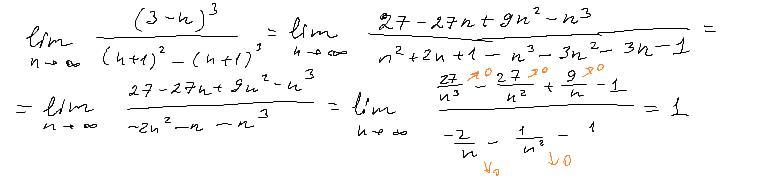 lim n→∞ (3-n)^3 / ((n+1)^2 - (n+1)^3) = lim n→∞ (27 - 27n + 9n^2 - n^3) / (n^2 + 2n + 1 - n^3 - 3n^2 - 3n - 1) =
= lim n→∞ (27 - 27n + 9n^2 - n^3) / (-2n^2 - n - n^3) = lim n→∞ (27/n^3 →0 - 27/n^2 →0 + 9/n →0 - 1) / (-2/n →0 - 1/n^2 →0 - 1) = 1